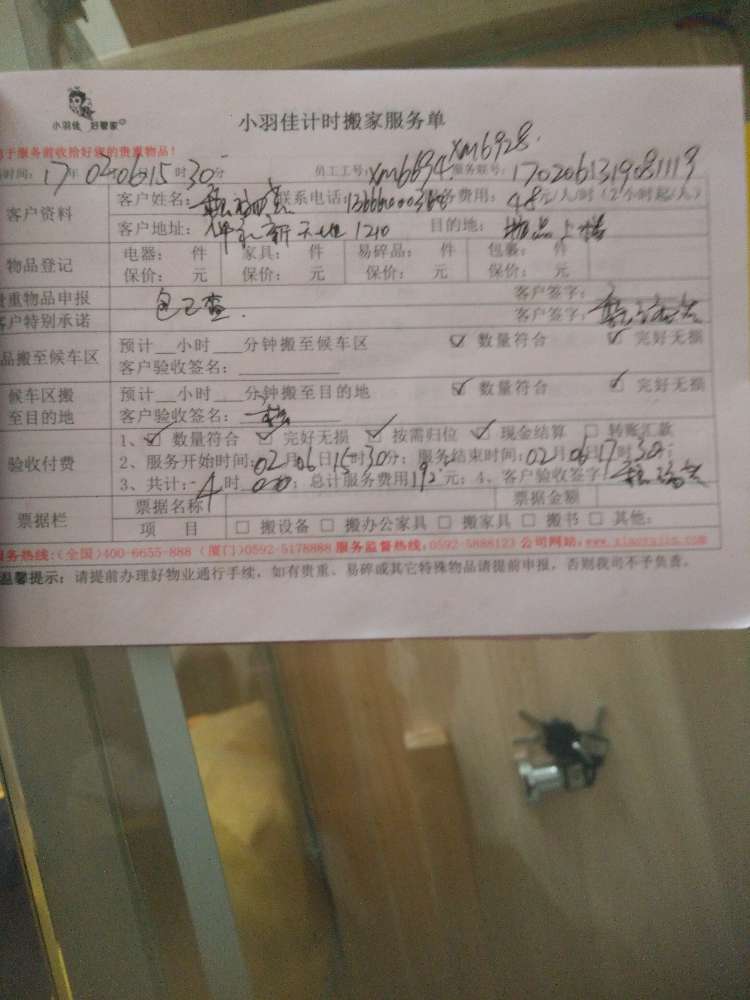 小羽佳 好管家
小羽佳计时搬家服务单
于服务前收拾好您的贵重物品!
时间: 17年 02 06 15时30分 员工工号: xm6694 xm6928 服务账号: 1702061319081119
客户资料 客户姓名: 联系电话: 服务费用: 48元/人/时(2小时起/人)
客户地址: 新天地 1210 目的地: 物品上楼
物品登记 电器: 件 家具: 件 易碎品: 件 包裹: 件
保价: 元 保价: 元 保价: 元 保价: 元
贵重物品申报 包已查. 客户签字:
客户特别承诺 客户签字:
品搬至候车区 预计__小时___分钟搬至候车区 ☑ 数量符合 ☑ 完好无损
客户验收签名:
候车区搬至目的地 预计__小时___分钟搬至目的地 ☑ 数量符合 ☑ 完好无损
客户验收签名:
验收付费 1、☑ 数量符合 ☑ 完好无损 ☑ 按需归位 ☑ 现金结算 □ 转账汇款
2、服务开始时间: 02月06日15时30分; 服务结束时间: 02月06 17时30分;
3、共计: 4时 总计服务费用192元; 4、客户验收签字:
票据栏 票据名称 票据金额
项 目 □ 搬设备 □ 搬办公家具 □ 搬家具 □ 搬书 □ 其他:
服务热线:(全国)400-6655-888 (厦门)0592-5178888 服务监督热线:0592-5888123 公司网站:
温馨提示: 请提前办理好物业通行手续, 如有贵重、易碎或其它特殊物品请提前申报, 否则我司不予负责。